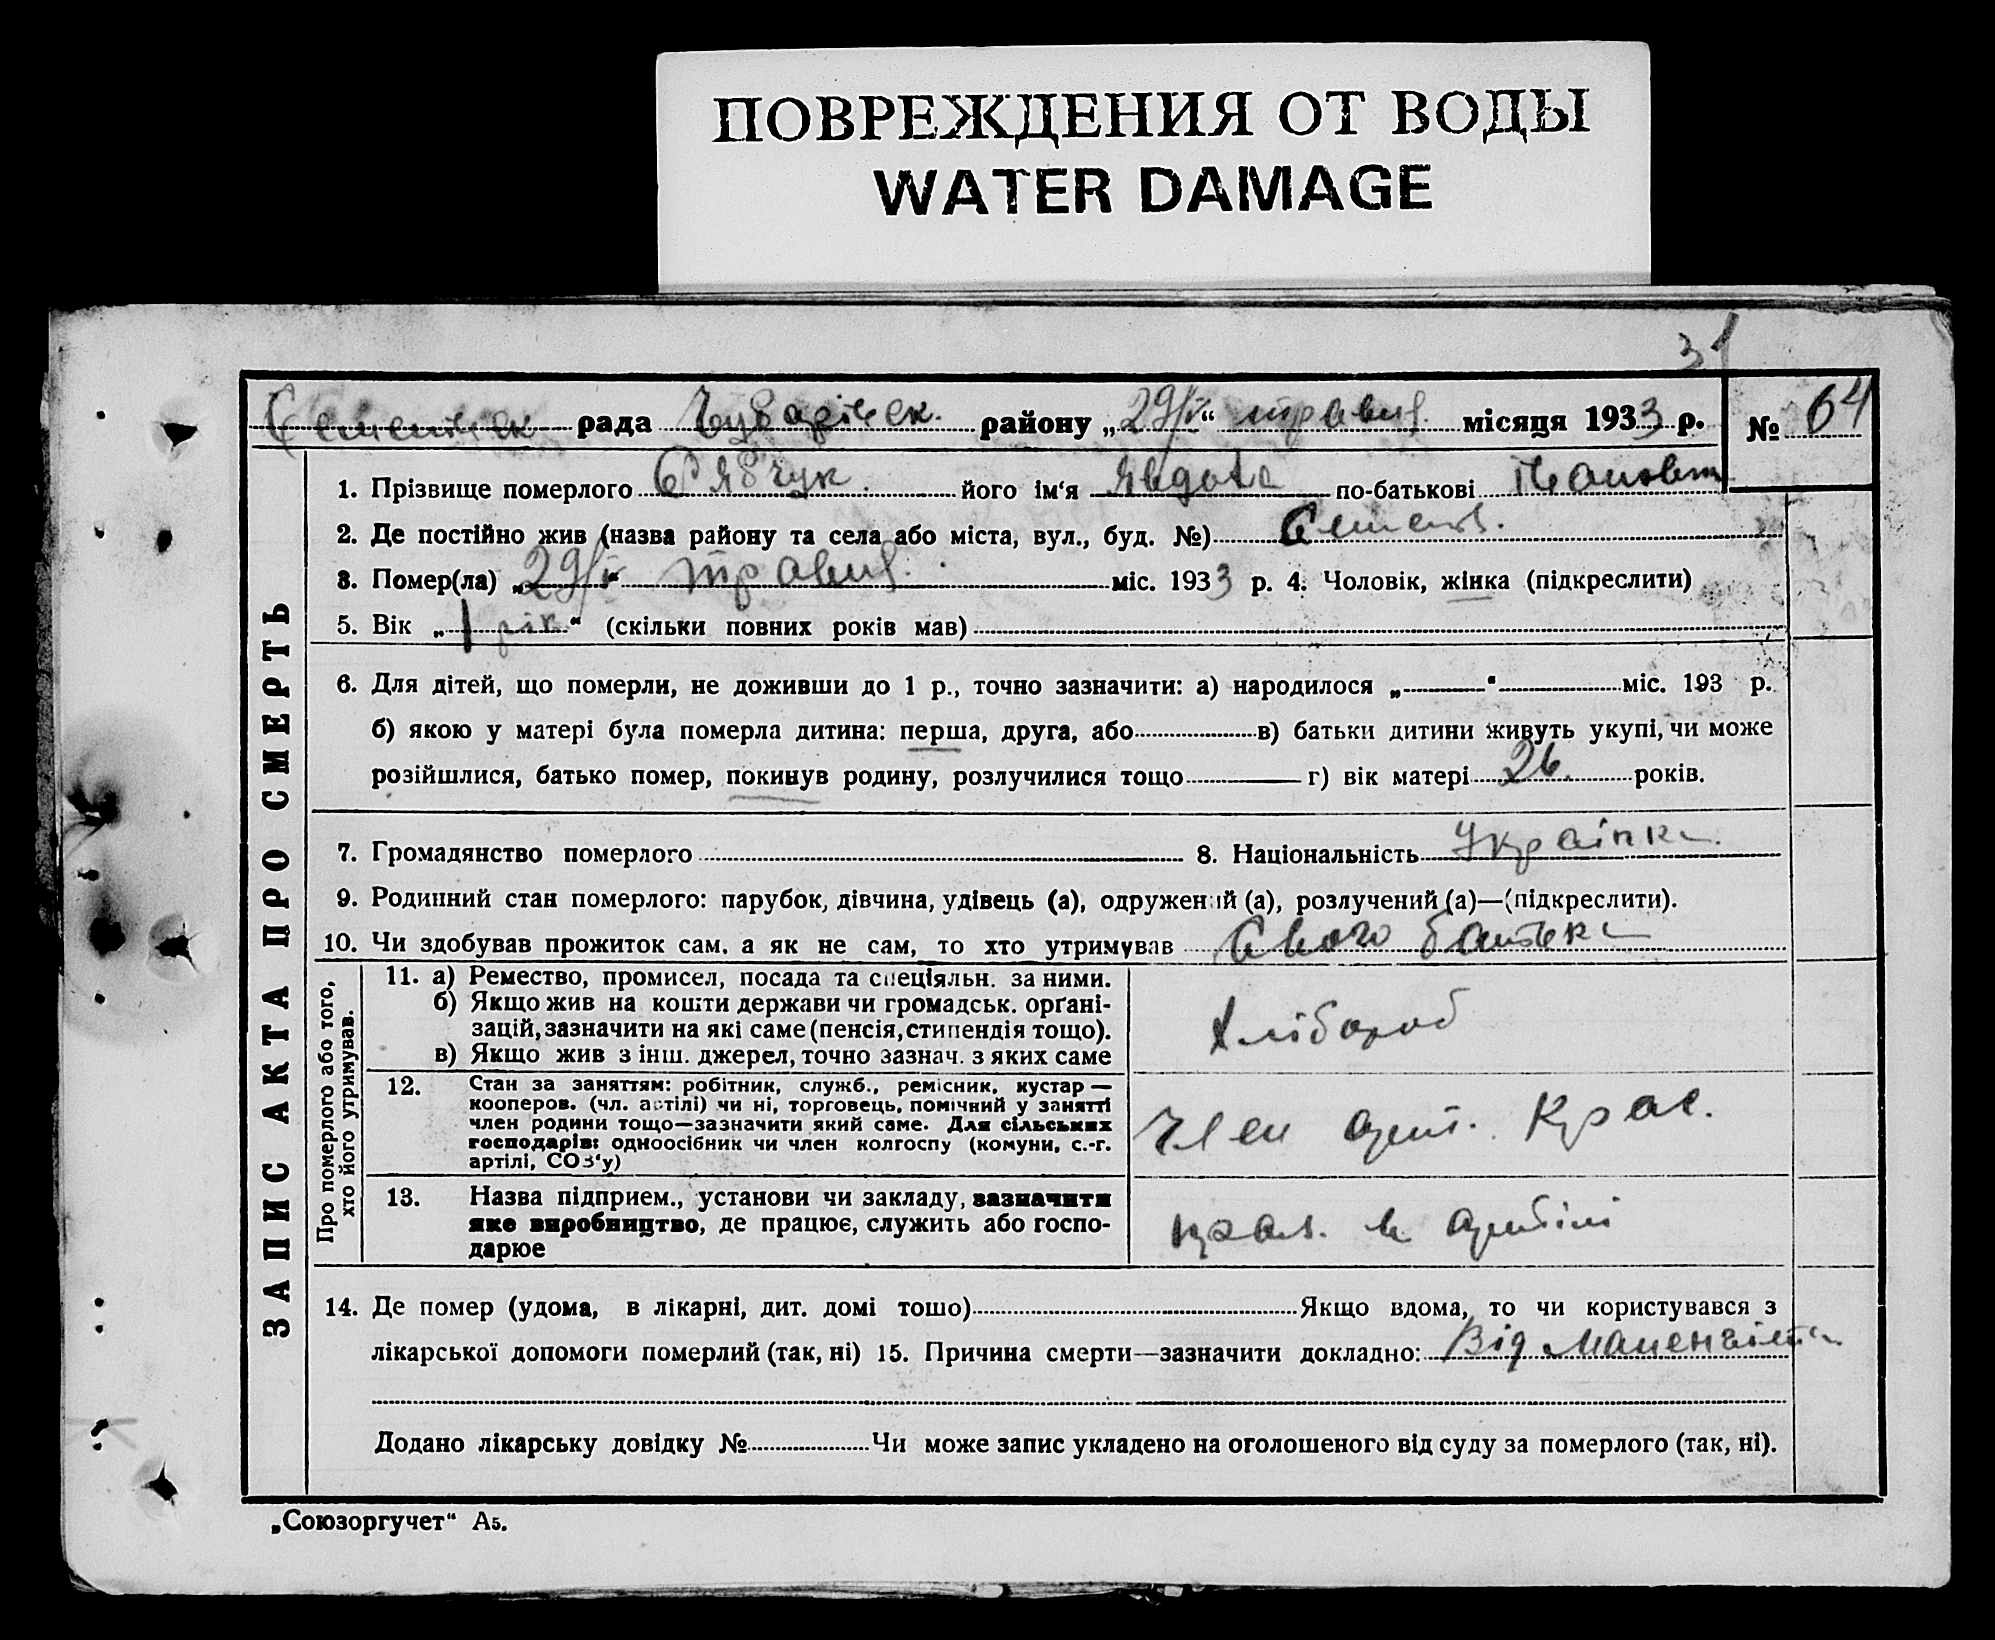 ПОВРЕЖДЕНИЯ ОТ ВОДЫ
WATER DAMAGE
31
рада району „29/V“ травня місяця 1933 р. № 64
ЗАПИС АКТА ПРО СМЕРТЬ
1. Прізвище померлого його ім‘я по-батькові
2. Де постійно жив (назва району та села або міста, вул., буд. №)
3. Помер(ла) „29/V“ міс. 1933 р. 4. Чоловік, жінка (підкреслити)
5. Вік „1 рік“ (скільки повних років мав)
6. Для дітей, що померли, не доживши до 1 р., точно зазначити: а) народилося „ “ міс. 193 р.
б) якою у матері була померла дитина: перша, друга, або в) батьки дитини живуть укупі, чи може
розійшлися, батько помер, покинув родину, розлучилися тощо г) вік матері 26. років.
7. Громадянство померлого 8. Національність Українка
9. Родинний стан померлого: парубок, дівчина, удівець (а), одружений (а), розлучений (а)—(підкреслити).
10. Чи здобував прожиток сам, а як не сам, то хто утримував Свого батька
Про померлого або того,
хто його утримував.
11. а) Ремество, промисел, посада та спеціяльн. за ними.
б) Якщо жив на кошти держави чи громадськ. орґані-
зацій, зазначити на які саме (пенсія, стипендія тощо).
в) Якщо жив з інш. джерел, точно зазнач. з яких саме
Хлібороб
12. Стан за заняттям: робітник, служб., ремісник, кустар —
кооперов. (чл. артілі) чи ні, торговець, помічний у занятті
член родини тощо—зазначити який саме. Для сільських
господарів: одноосібник чи член колгоспу (комуни, с.-г.
артілі, СОЗ‘у)
Член арт.
13. Назва підприєм., установи чи закладу, зазначити
яке виробництво, де працює, служить або госпо-
дарює
в артілі
14. Де помер (удома, в лікарні, дит. домі тошо) Якщо вдома, то чи користувався з
лікарської допомоги померлий (так, ні) 15. Причина смерти—зазначити докладно: Від
Додано лікарську довідку № Чи може запис укладено на оголошеного від суду за померлого (так, ні).
„Союзоргучет“ А5.